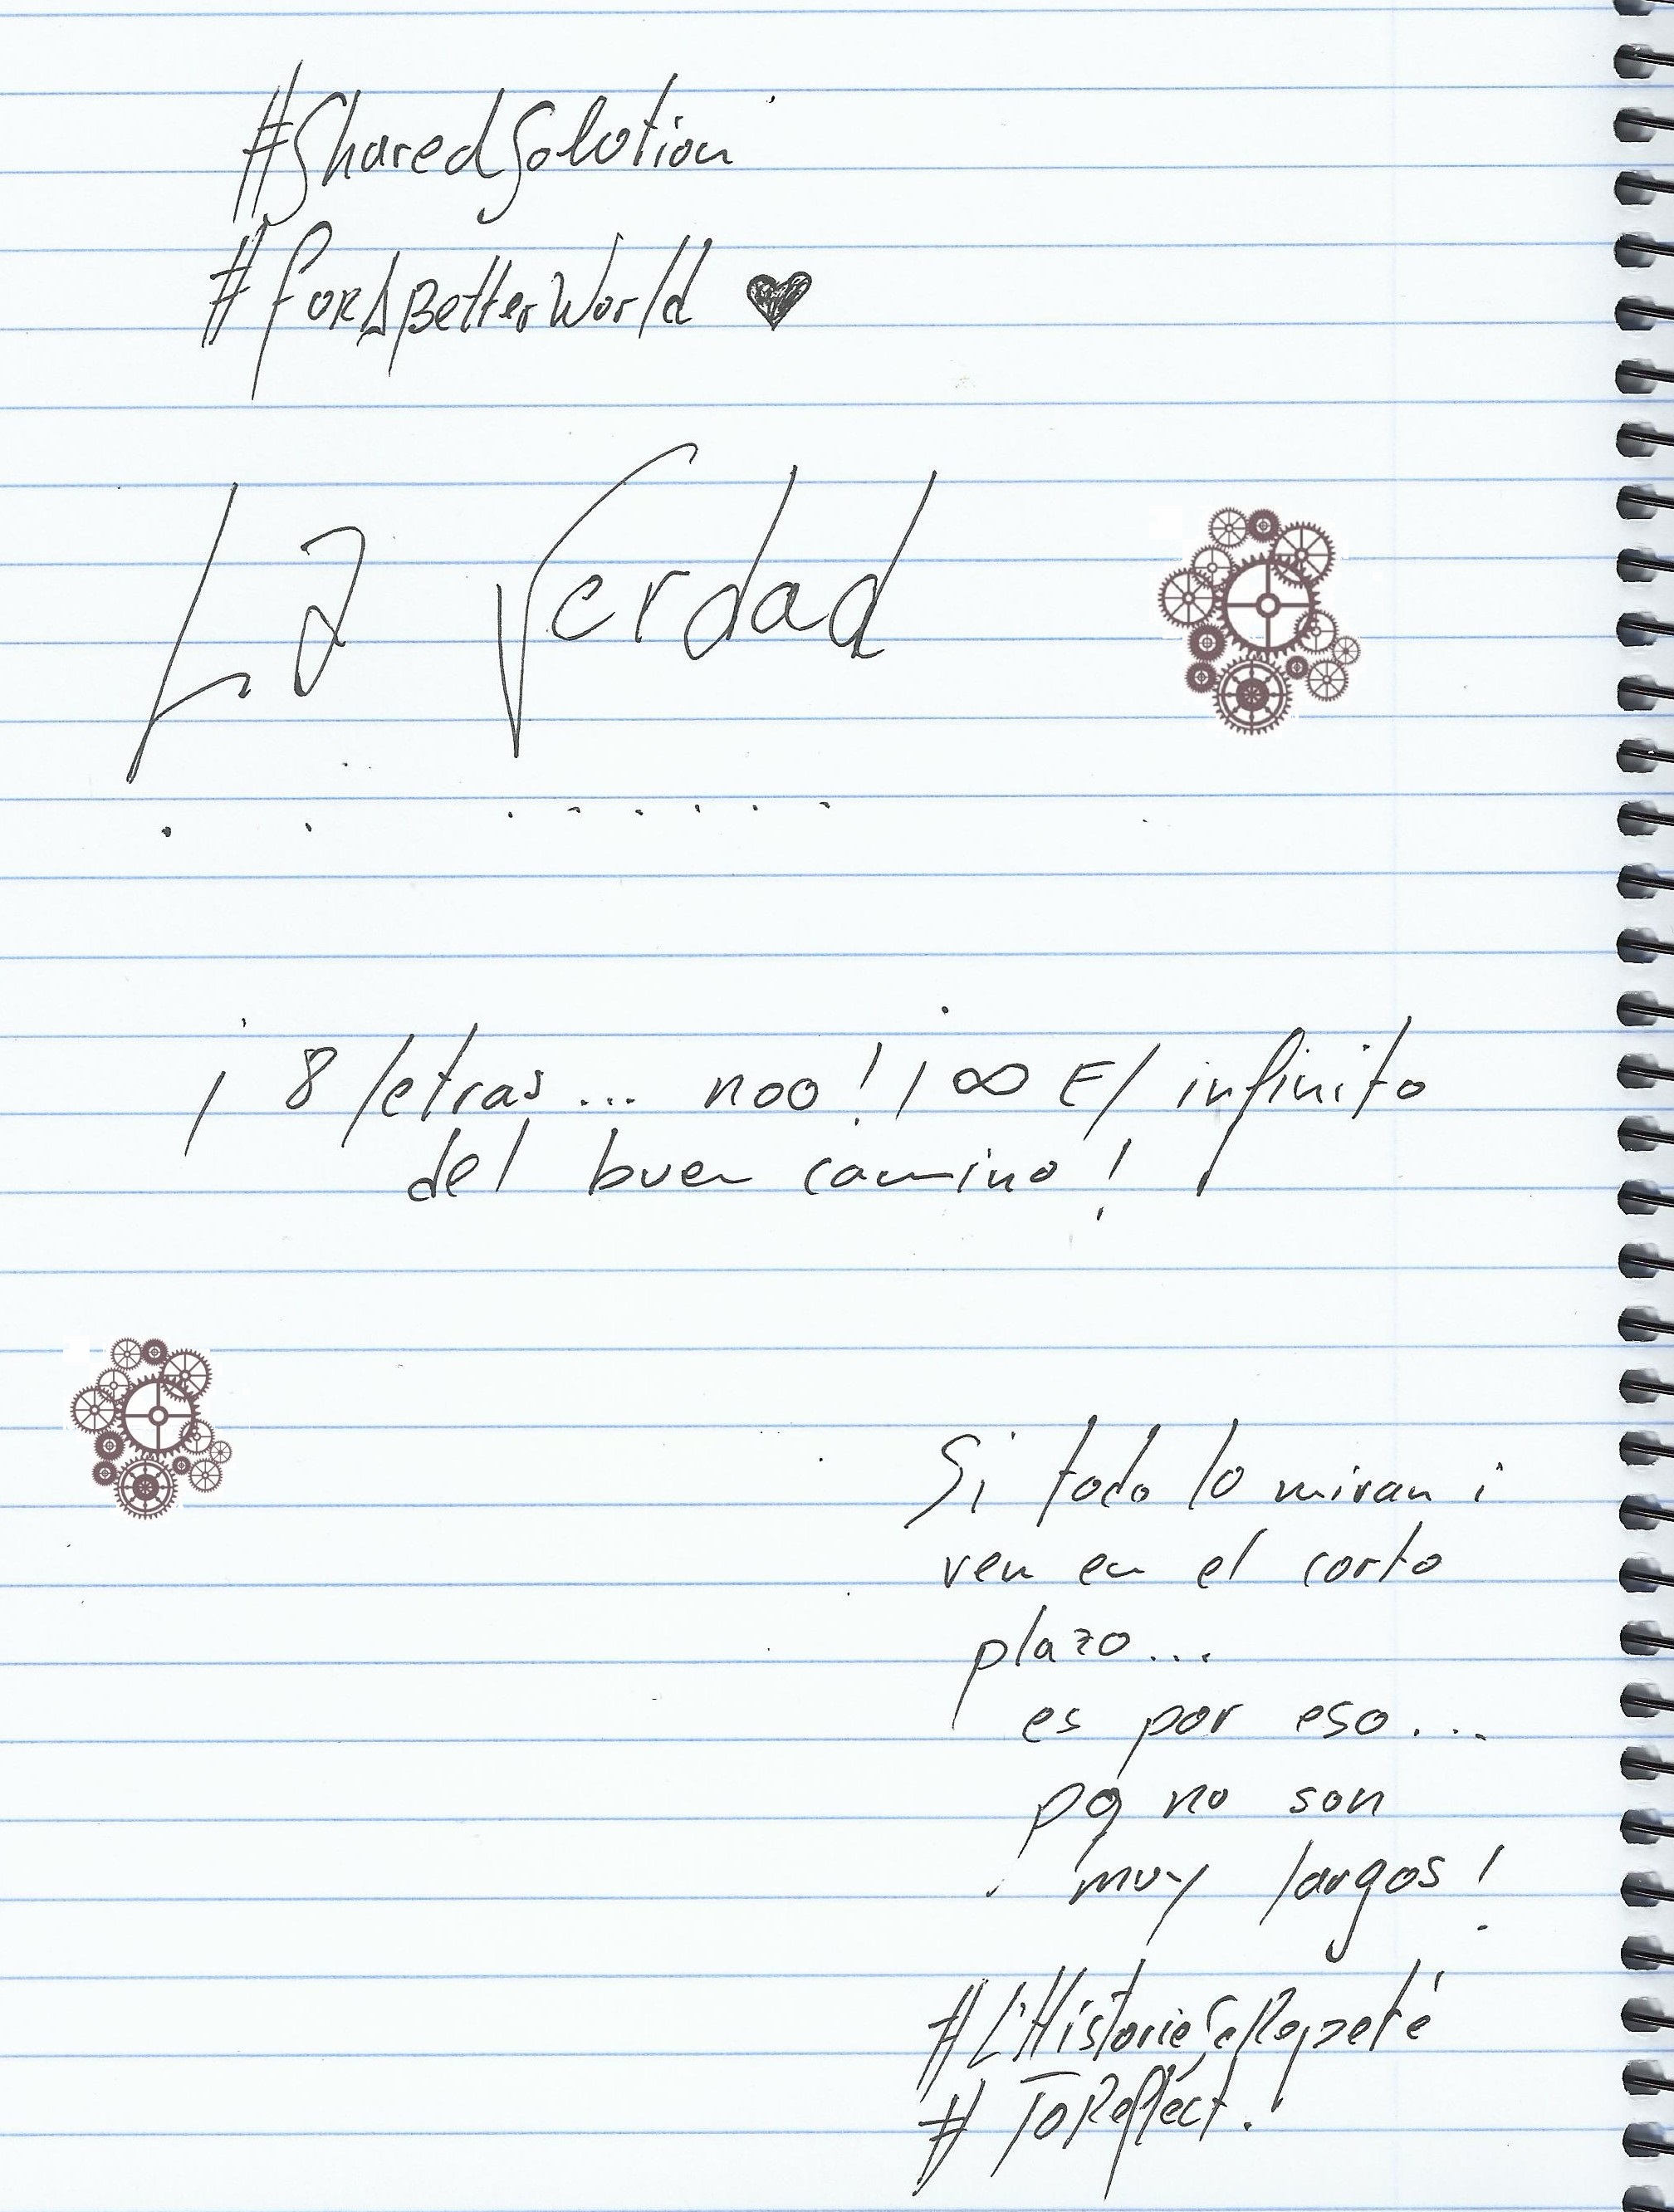 #SharedSolution
#ForABetterWorld ♥
La Verdad
. . . . . . . .
¡ 8 letras... noo! ¡ ∞ El infinito
del buen camino!
Si todo lo miran i
ven en el corto
plazo...
es por eso....
pq no son
muy largos!
#L'HistorieSeRepeté
#ToReflect.